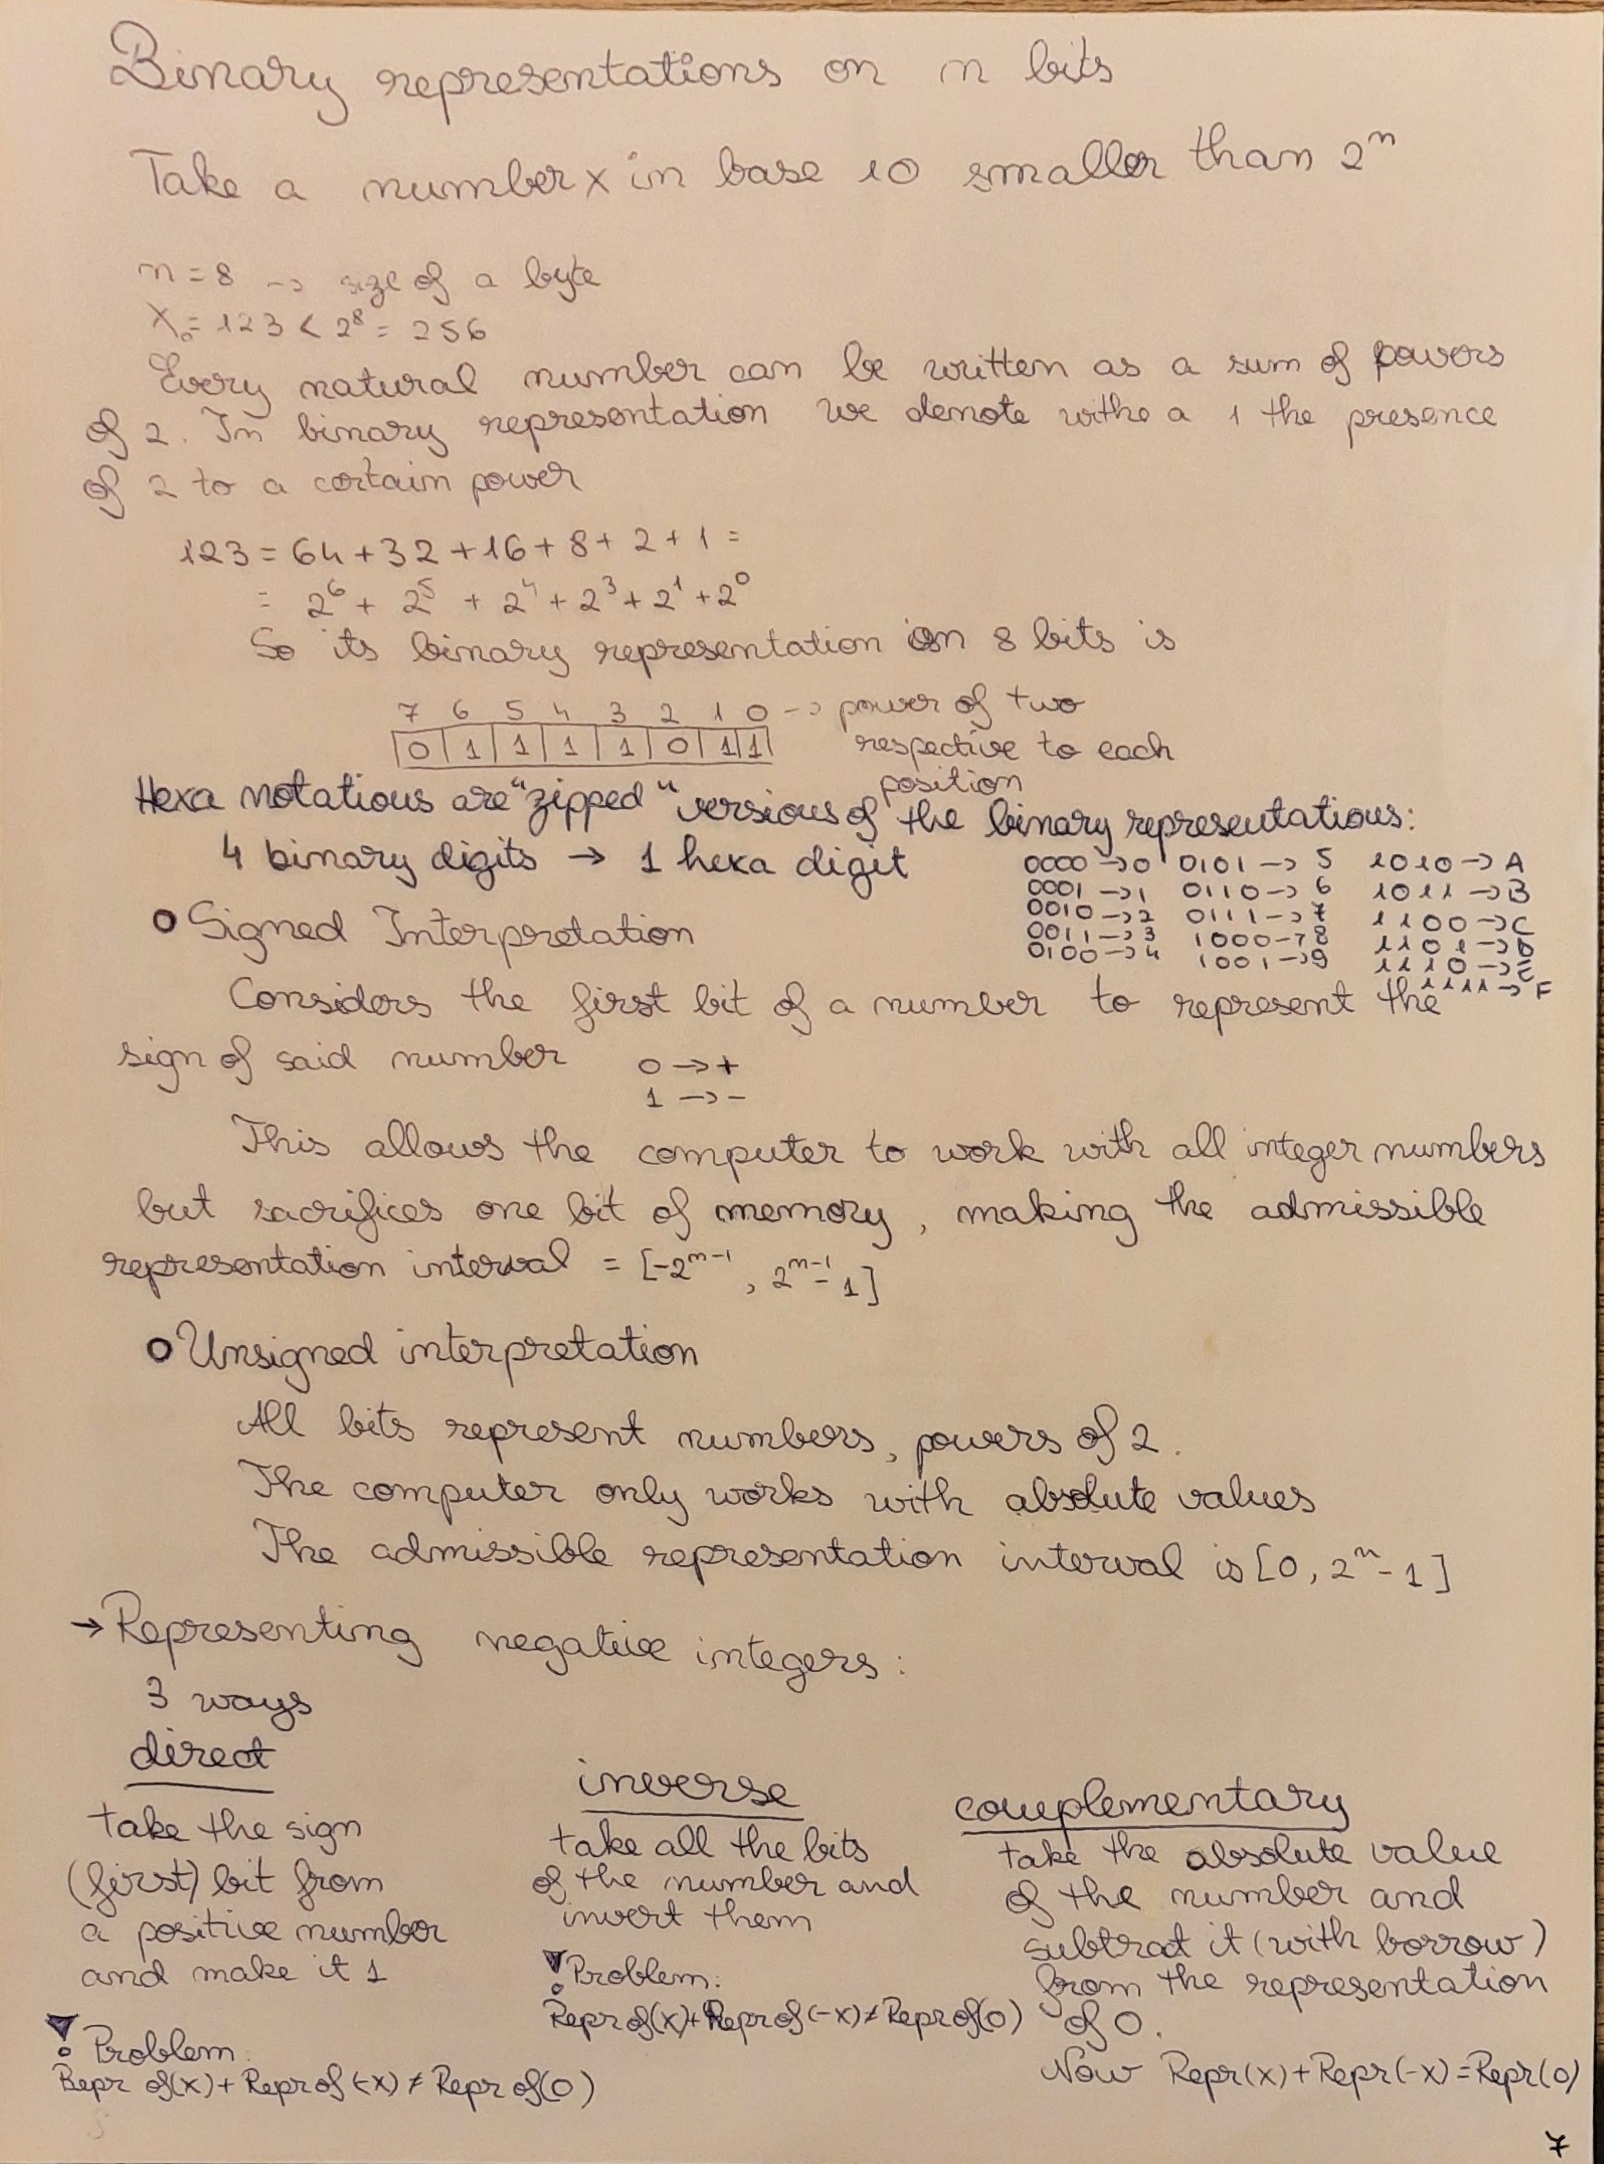 Binary representations on n bits
Take a number x in base 10 smaller than 2^n
n = 8 -> size of a byte
X = 123 < 2^8 = 256
Every natural number can be written as a sum of powers
of 2. In binary representation we denote withe a 1 the presence
of 2 to a certain power
123 = 64 + 32 + 16 + 8 + 2 + 1 =
= 2^6 + 2^5 + 2^4 + 2^3 + 2^1 + 2^0
So its binary representation on 8 bits is
7 6 5 4 3 2 1 0 -> power of two
0 1 1 1 1 0 1 1 respective to each
position
Hexa notations are "zipped" versions of the binary representations:
4 binary digits → 1 hexa digit
0000 -> 0 0101 -> 5 1010 -> A
0001 -> 1 0110 -> 6 1011 -> B
0010 -> 2 0111 -> 7 1100 -> C
0011 -> 3 1000 -> 8 1101 -> D
0100 -> 4 1001 -> 9 1110 -> E
1111 -> F
o Signed Interpretation
Considers the first bit of a number to represent the
sign of said number 0 -> +
1 -> -
This allows the computer to work with all integer numbers
but sacrifices one bit of memory, making the admissible
representation interval = [-2^n-1, 2^n-1 - 1]
o Unsigned interpretation
All bits represent numbers, powers of 2.
The computer only works with absolute values
The admissible representation interval is [0, 2^n - 1]
→ Representing negative integers:
3 ways
direct
take the sign
(first) bit from
a positive number
and make it 1
! Problem:
Repr of(x) + Repr of(-x) ≠ Repr of(0)
inverse
take all the bits
of the number and
invert them
! Problem:
Repr of(x) + Repr of(-x) ≠ Repr of(0)
complementary
take the absolute value
of the number and
subtract it (with borrow)
from the representation
of 0.
Now Repr(x) + Repr(-x) = Repr(0)
7